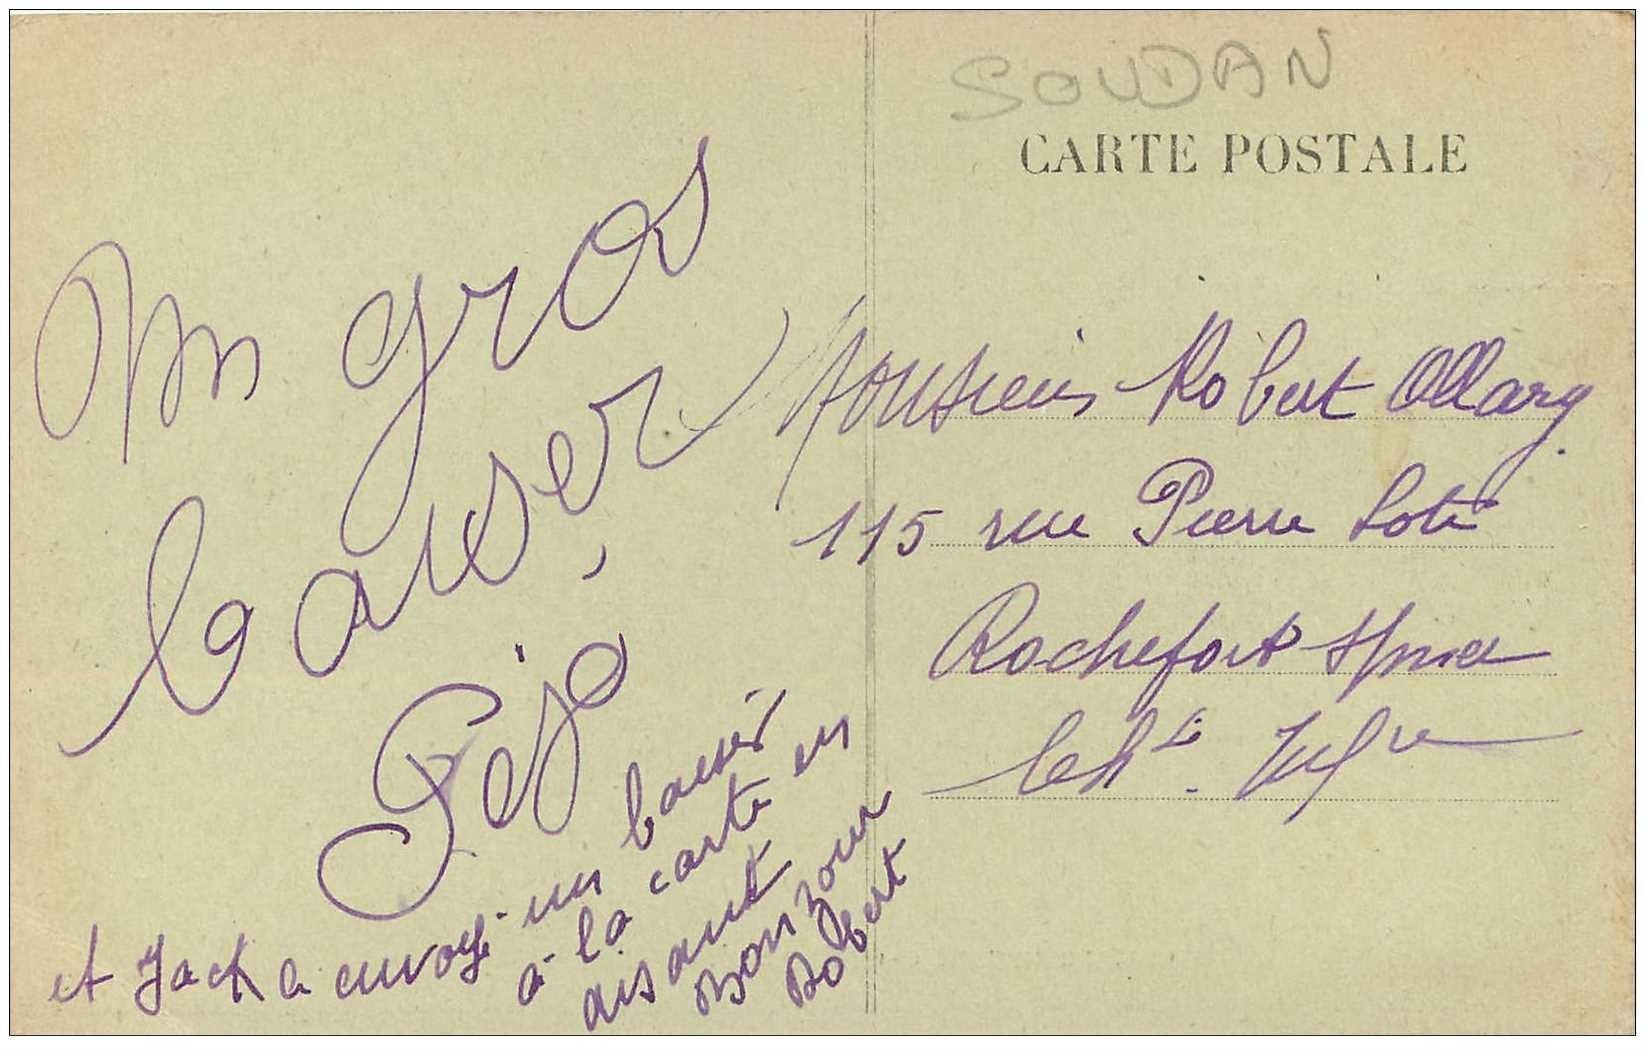 SOUDAN
CARTE POSTALE
Un gros
baiser,
et Jack a envoyé un baiser
à la carte en
disant
Bonzour
Robert
Monsieur Robert Ollary
115 rue Pierre Loti
Rochefort s/mer
Chte Infre